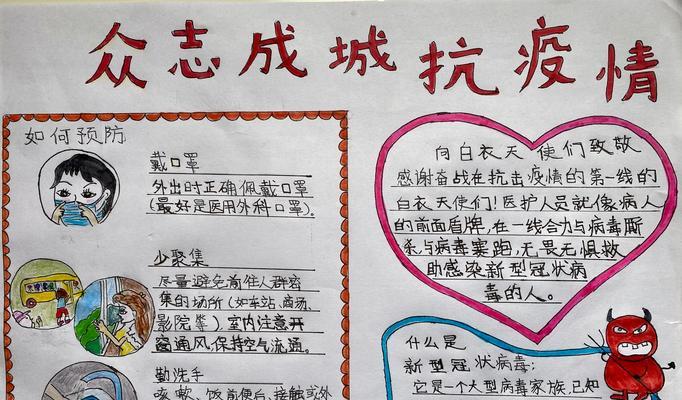 众志成城抗疫情
如何预防
戴口罩
外出时正确佩戴口罩
(最好是医用外科口罩)。
少聚集
尽量避免前往人群密
集的场所(如车站、商汤、
影院拳)室内注意开
窗通风,保持空气流通。
勤洗手
咳嗽、饭前便后、接触或外
向白衣天使们致敬
感谢奋战在抗击疫情的第一线的
白衣天使们!医护人员就像病人
的前面盾牌,在一线合力与病毒厮
杀,与病毒赛跑,无畏无惧救
助感染新型冠状病
毒的人。
什么是
新型冠状病毒:
它是一个大型病毒家族,已知